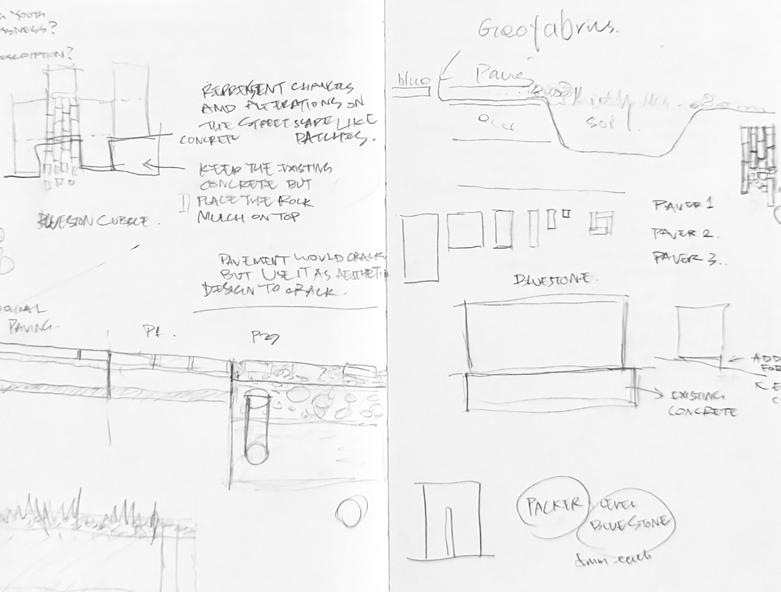 YOUTH
DESCRIPTION?
REPRESENT CHANGES
AND ALTERATIONS ON
THE STREETSCAPE LIKE
PATCHES.
CONCRETE
KEEP THE EXISTING
CONCRETE BUT
PLACE THE ROCK
MULCH ON TOP
BLUESTON CUBBLE.
PAVEMENT WOULD CRACK
BUT USE IT AS AESTHETI
DESIGN TO CRACK.
PAVING.
P1.
Geofabrics.
blue
Pave
Soil
PAVER 1
PAVER 2.
PAVER 3..
BLUESTONE.
ADD
FOR
EXISTING
CONCRETE
PACKER
LEVEL
BLUESTONE
5mm each